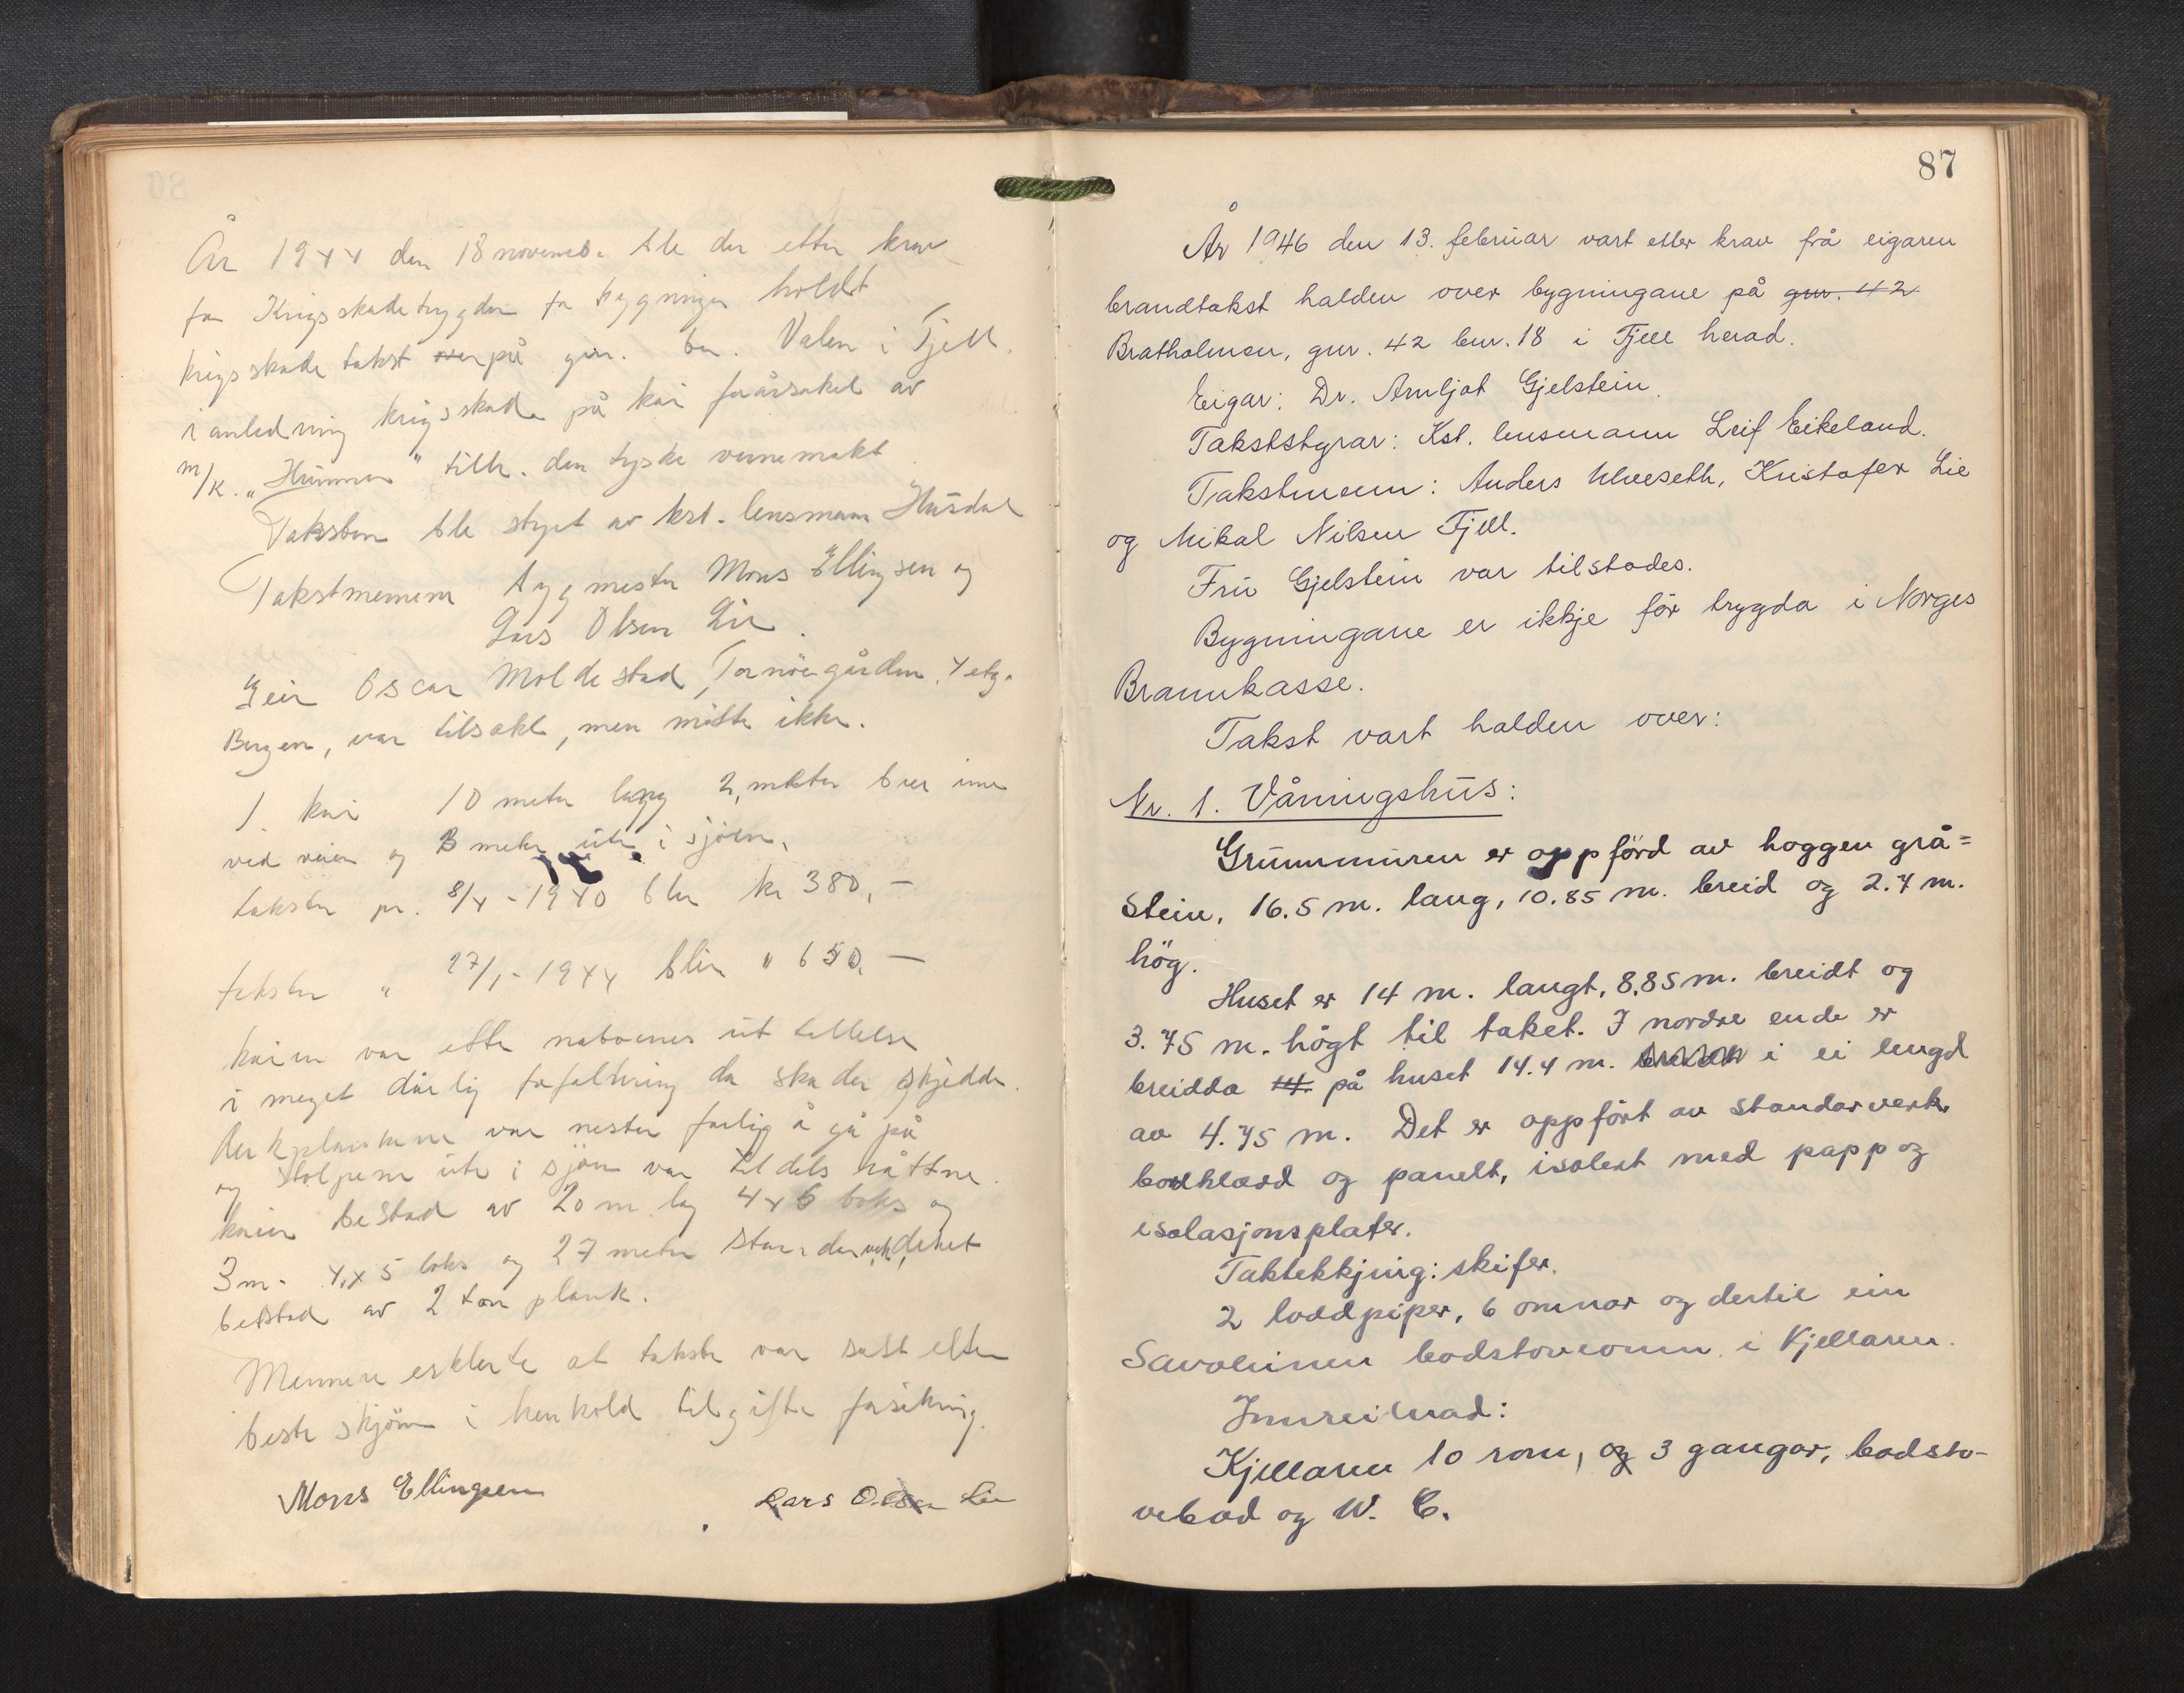 År 1944 den 18 novemb. ble der etter krav
fra Krigsskadetrygden for bygninger holdt
krigsskade takst på gnr. bn. Valen i Fjell.
i anledning krigsskade på kai forårsaket av
m/k. „Hummer" tilh. den tyske vernemakt
Taksten ble styret av kst. lensmann Husdal
Takstmennene byggmester Mons Ellingsen og
Lars Olsen Lie.
Eeir Oscar Moldestad, Tornöegården, 4 etg.
Bergen, var tilsakt, men mötte ikke.
1 kai 10 meter lang 2, meter bred inne
ved veien og 3 meter ute i sjöen,
taksten pr. 8/4 - 1940 ble kr 380,-
taksten " 27/1 - 1944 blir " 650,-
kaien var etter naboenes uttellelse
i meget dårlig forfatning da skaden skjedde.
dekkplankene var nesten farlig å gå på
og stolpene ute i sjön var til dels råttne.
kaien bestod av 20 m. lag 4 x 6 boks og
3 m. 4 x 5 boks og 27 meter standerverk, dekket
bestod av 2 tom plank.
Mennene erklerte at taksten var satt etter
beste skjönn i henhold til gifte forsikring.
Mons Ellingsen Lars Olsen Lie
87
År 1946 den 13. februar vart etter krav frå eigaren
brandtakst halden over bygningane på gnr. 42
Bratholmen, gnr. 42 bnr. 18 i Fjell herad.
Eigar: Dr. Arnljot Gjelstein.
Takststyrar: Kst. lensmann Leif Eikeland.
Takstmenn: Anders Ulveseth, Kristofer Lie
og Mikal Nilsen Fjell.
Fru Gjelstein var tilstades.
Bygningane er ikkje för trygda i Norges
Brannkasse.
Takst vart halden over:
Nr. 1. Våningshus:
Grunnmuren er oppförd av hoggen grå=
stein, 16.5 m. lang, 10.85 m. breid og 2.4 m.
hög.
Huset er 14 m. langt, 8.85 m. breidt og
3.75 m. högt til taket. I nordre ende er
breidda på huset 14.4 m. i ei lengd
av 4.75 m. Det er oppfört av standarverk
bordklædd og panelt, isolert med papp og
isolasjonsplater.
Taktekkjing: skifer.
2 loddpiper, 6 omnar og dertil ein
Savolinen badstoveomn i kjellaren.
Innreidnad:
Kjellaren 10 rom, og 3 gangar, badsto-
vebad og W. C.